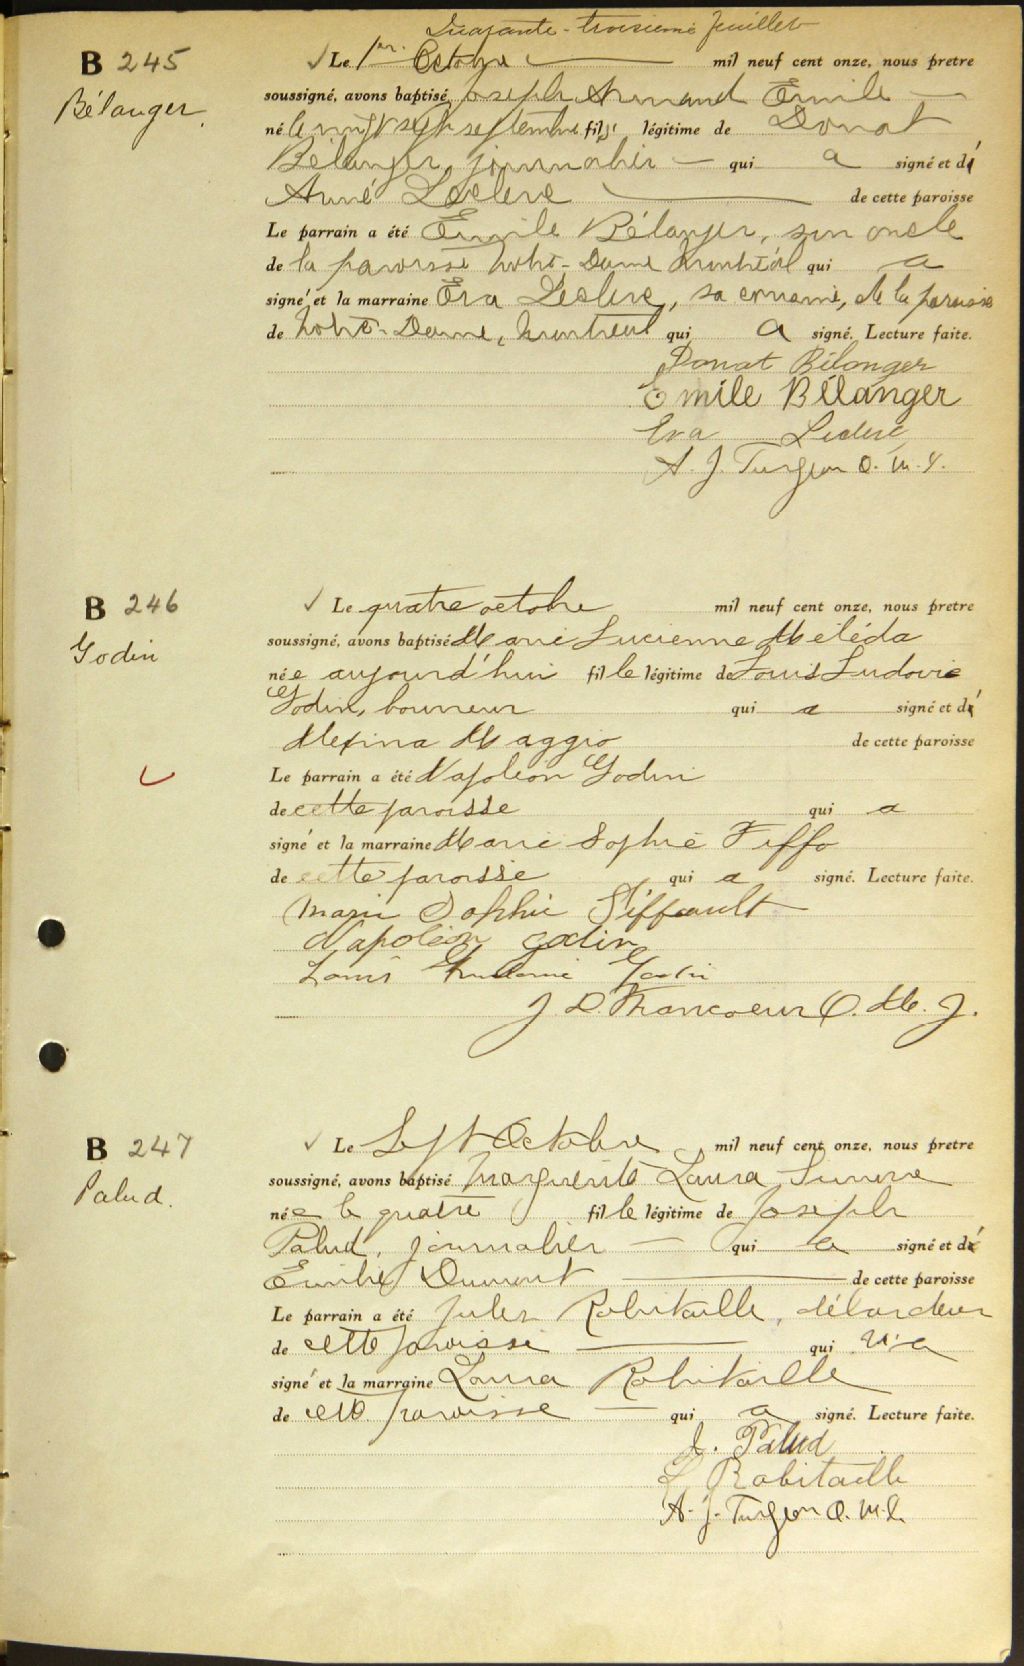 Quarante-troisième feuillet
B 245
Bélanger
Le 1er Octobre mil neuf cent onze, nous pretre
soussigné, avons baptisé Joseph Armand Emile
né le vingt sept septembre fils légitime de Donat
Bélanger, journalier qui a signé et de
Anné Leclerc de cette paroisse
Le parrain a été Emile Bélanger, son oncle
de la paroisse Notre-Dame Montréal qui a
signé et la marraine Eva Leclerc, sa cousine, de la paroisse
de Notre-Dame, Montréal qui a signé. Lecture faite.
Donat Bélanger
Emile Bélanger
Eva Leclerc
A. J. Turgeon O. M. I.
B 246
Godin
Le quatre octobre mil neuf cent onze, nous pretre
soussigné, avons baptisé Marie Lucienne Méléda
née aujourd'hui fille légitime de Louis Ludovic
Godin, bourreur qui a signé et de
Mexina Maggio de cette paroisse
Le parrain a été Napoléon Godin
de cette paroisse qui a
signé et la marraine Marie Sophie Fiffo
de cette paroisse qui a signé. Lecture faite.
Marie Sophie Fiffeault
Napoléon Godin
Louis Godin
J D. Francoeur O. M. J.
B 247
Palud.
Le Sept Octobre mil neuf cent onze, nous pretre
soussigné, avons baptisé Marguerite Laura Simone
née le quatre fille légitime de Joseph
Palud, journalier qui a signé et de
Emilie Dumont de cette paroisse
Le parrain a été Jules Robitaille, débardeur
de cette paroisse qui n'a
signé et la marraine Laura Robitaille
de cette paroisse qui a signé. Lecture faite.
J. Palud
L Robitaille
A. J. Turgeon O. M. I.